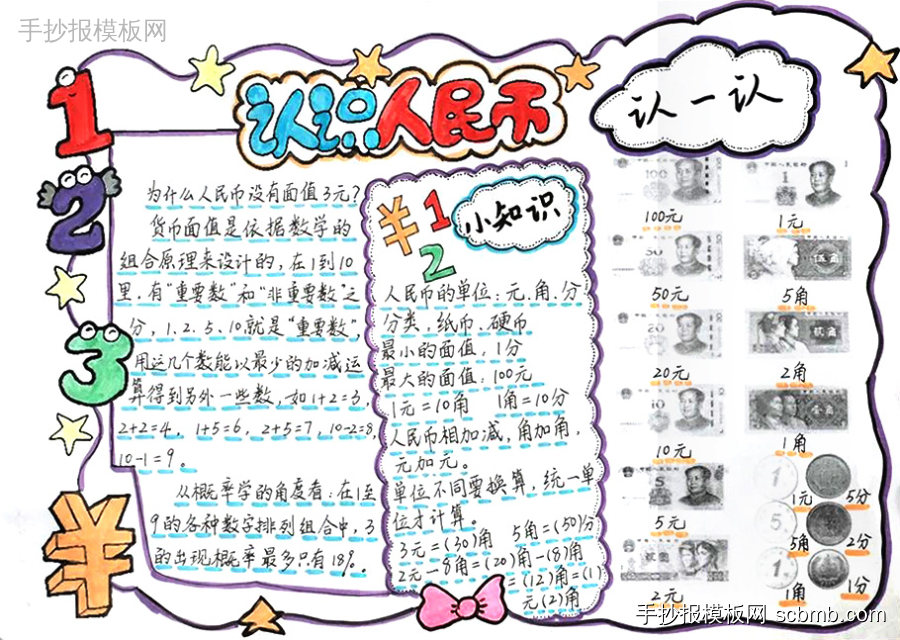 手抄报模板网
认识人民币
认一认
1
2
3
¥
为什么人民币没有面值3元?
货币面值是依据数学的
组合原理来设计的,在1到10
里,有“重要数”和“非重要数”之
分,1、2、5、10就是“重要数”,
用这几个数能以最少的加减运
算得到另外一些数,如1+2=3,
2+2=4,1+5=6,2+5=7,10-2=8,
10-1=9。
从概率学的角度看:在1至
9的各种数字排列组合中,3
的出现概率最多只有18%。
¥12
小知识
人民币的单位:元、角、分
分类:纸币、硬币
最小的面值:1分
最大的面值:100元
1元=10角 1角=10分
人民币相加减,角加角,
元加元。
单位不同要换算,统一单
位才计算。
3元=(30)角 5角=(50)分
2元-8角=(20)角-(8)角
=(12)角=(1)
元(2)角
100元
1元
50元
5角
20元
2角
10元
1角
5元
1元 5分
5角 2分
2元
1角 1分
手抄报模板网 scbmb.com